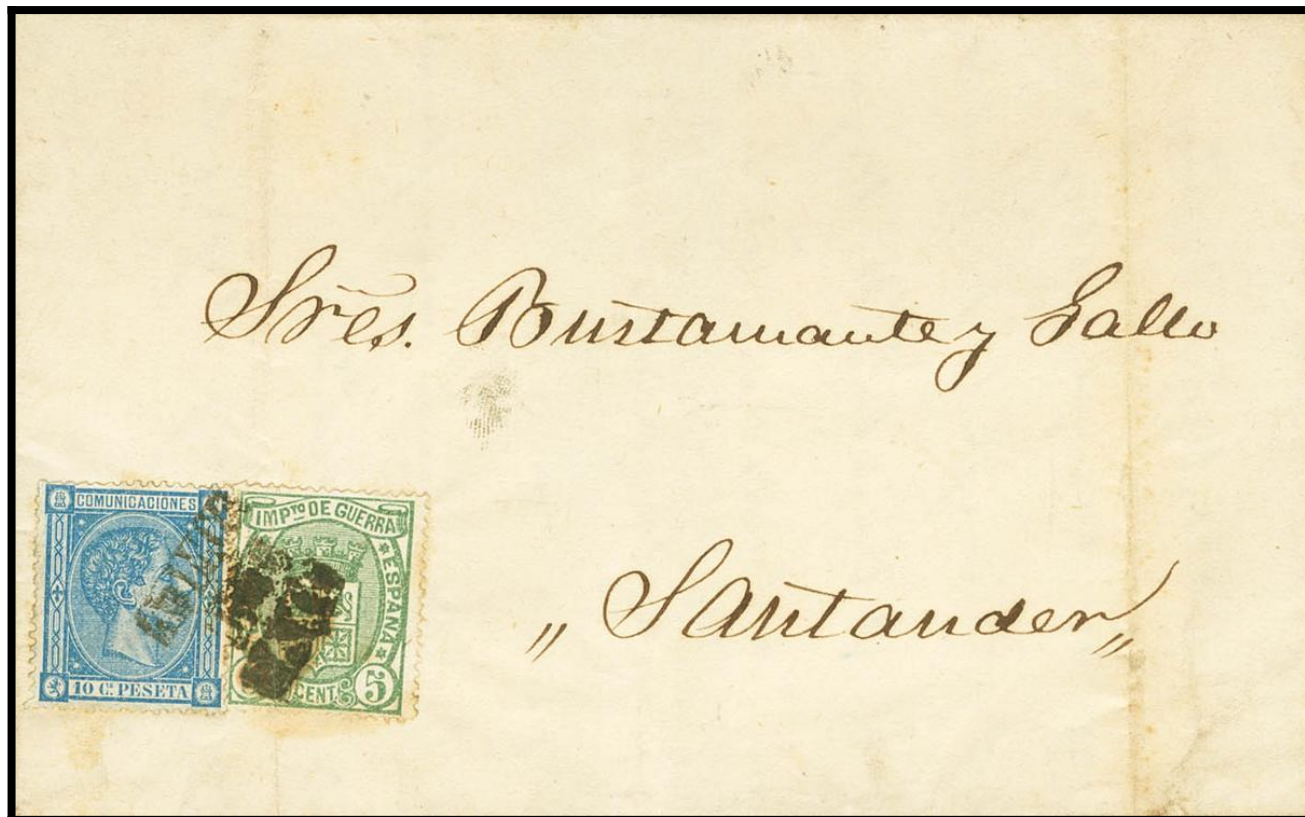 Sres. Bustamante y Gallo
„ Santander „
COMUNICACIONES
10 Cs. PESETA
IMPto DE GUERRA
ESPAÑA
CENT. 5